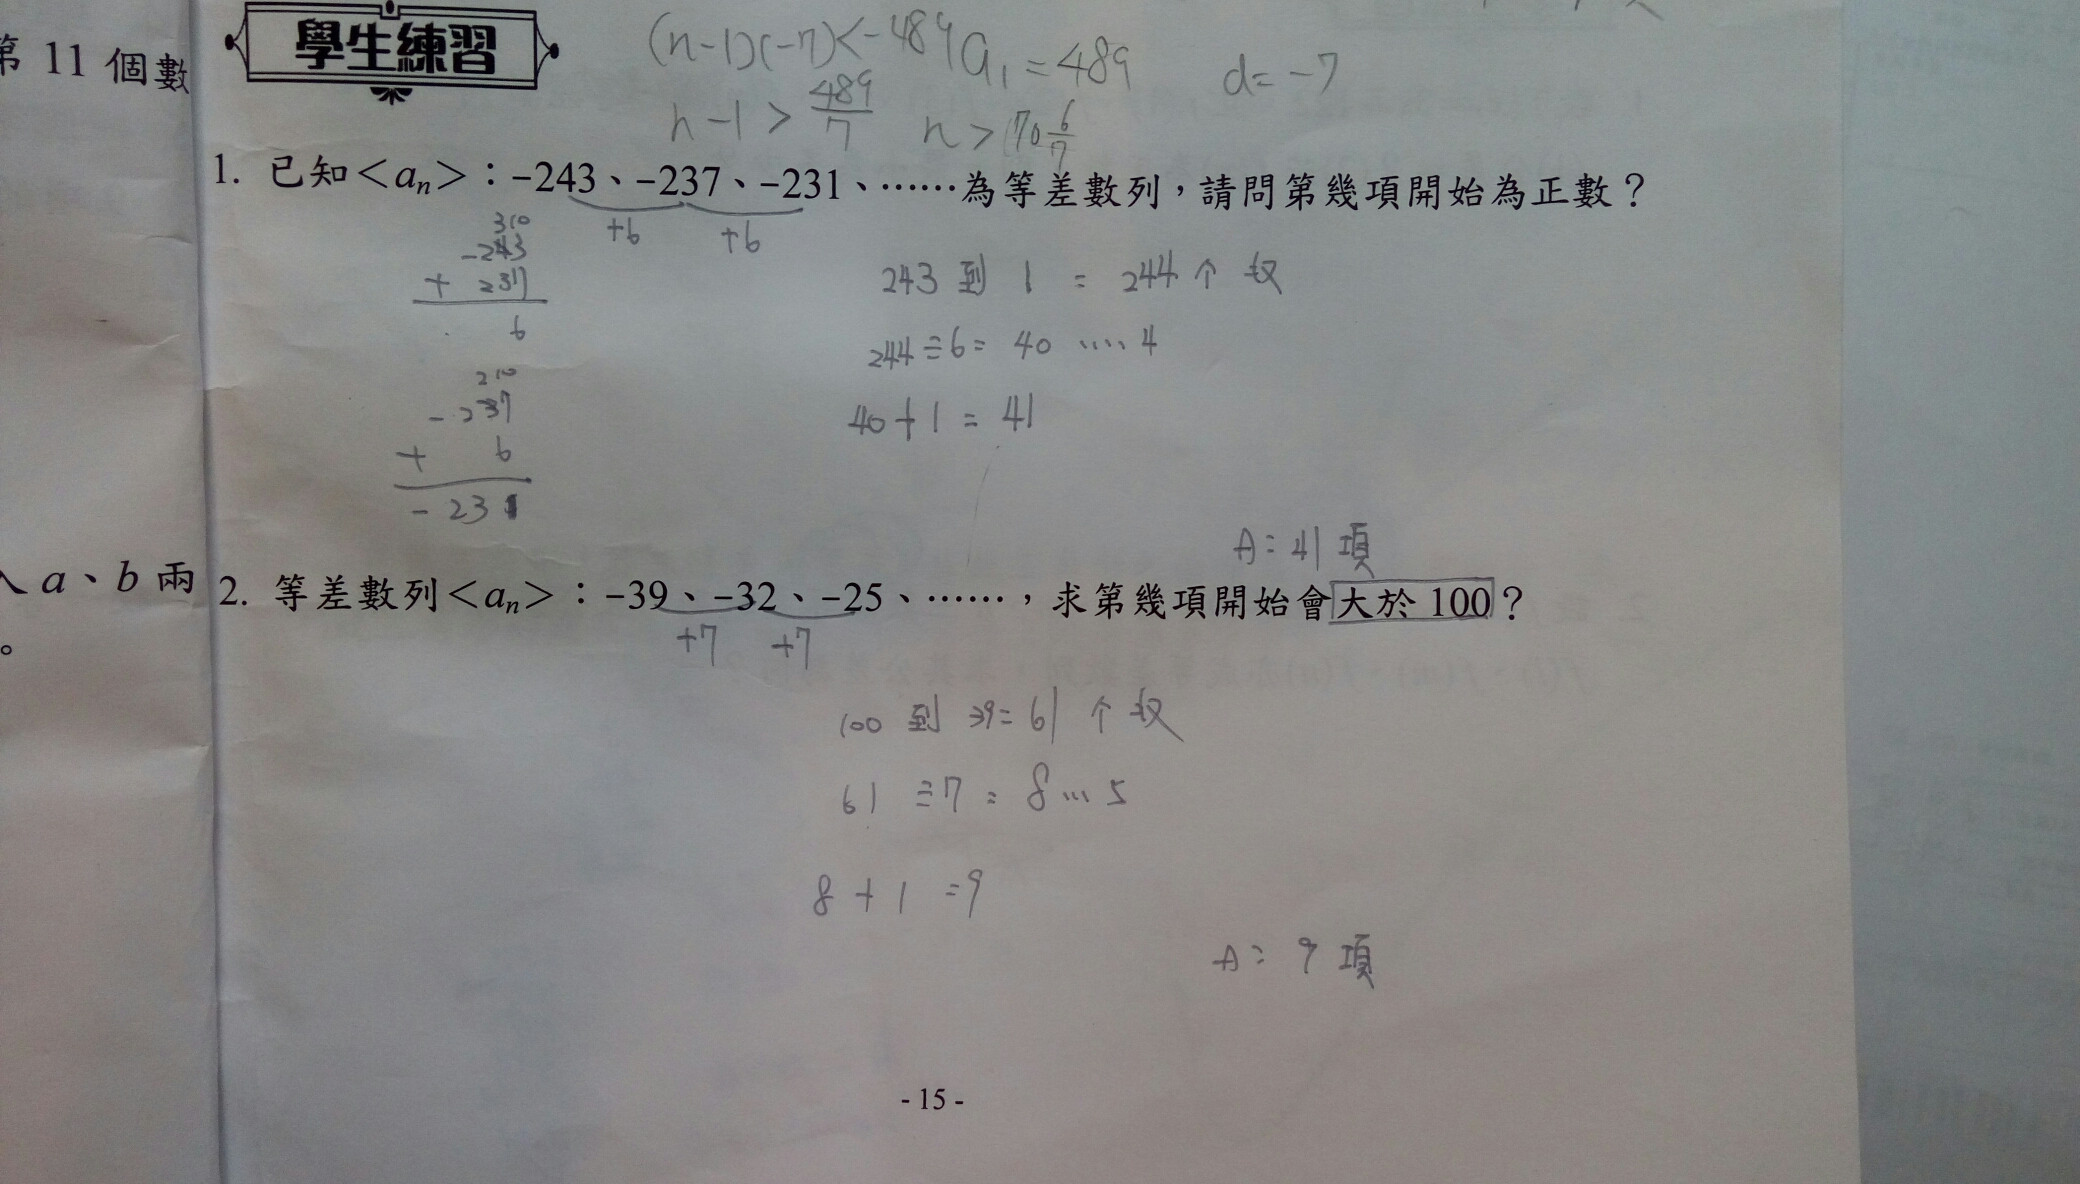 第 11 個數
學生練習
(n-1)(-7)<-489 a₁=489 d=-7
n-1>489/7 n>70 6/7
1. 已知<aₙ>：-243、-237、-231、……為等差數列，請問第幾項開始為正數？
+6 +6
310
-243
+ 237
6
210
-237
+ 6
-231
243 到 1 = 244 个 数
244÷6= 40 ....4
40+1=41
A：41 項
入 a、b 兩
。
2. 等差數列<aₙ>：-39、-32、-25、……，求第幾項開始會大於 100？
+7 +7
100 到 39=61 个 数
61÷7=8...5
8+1=9
A：9 項
- 15 -